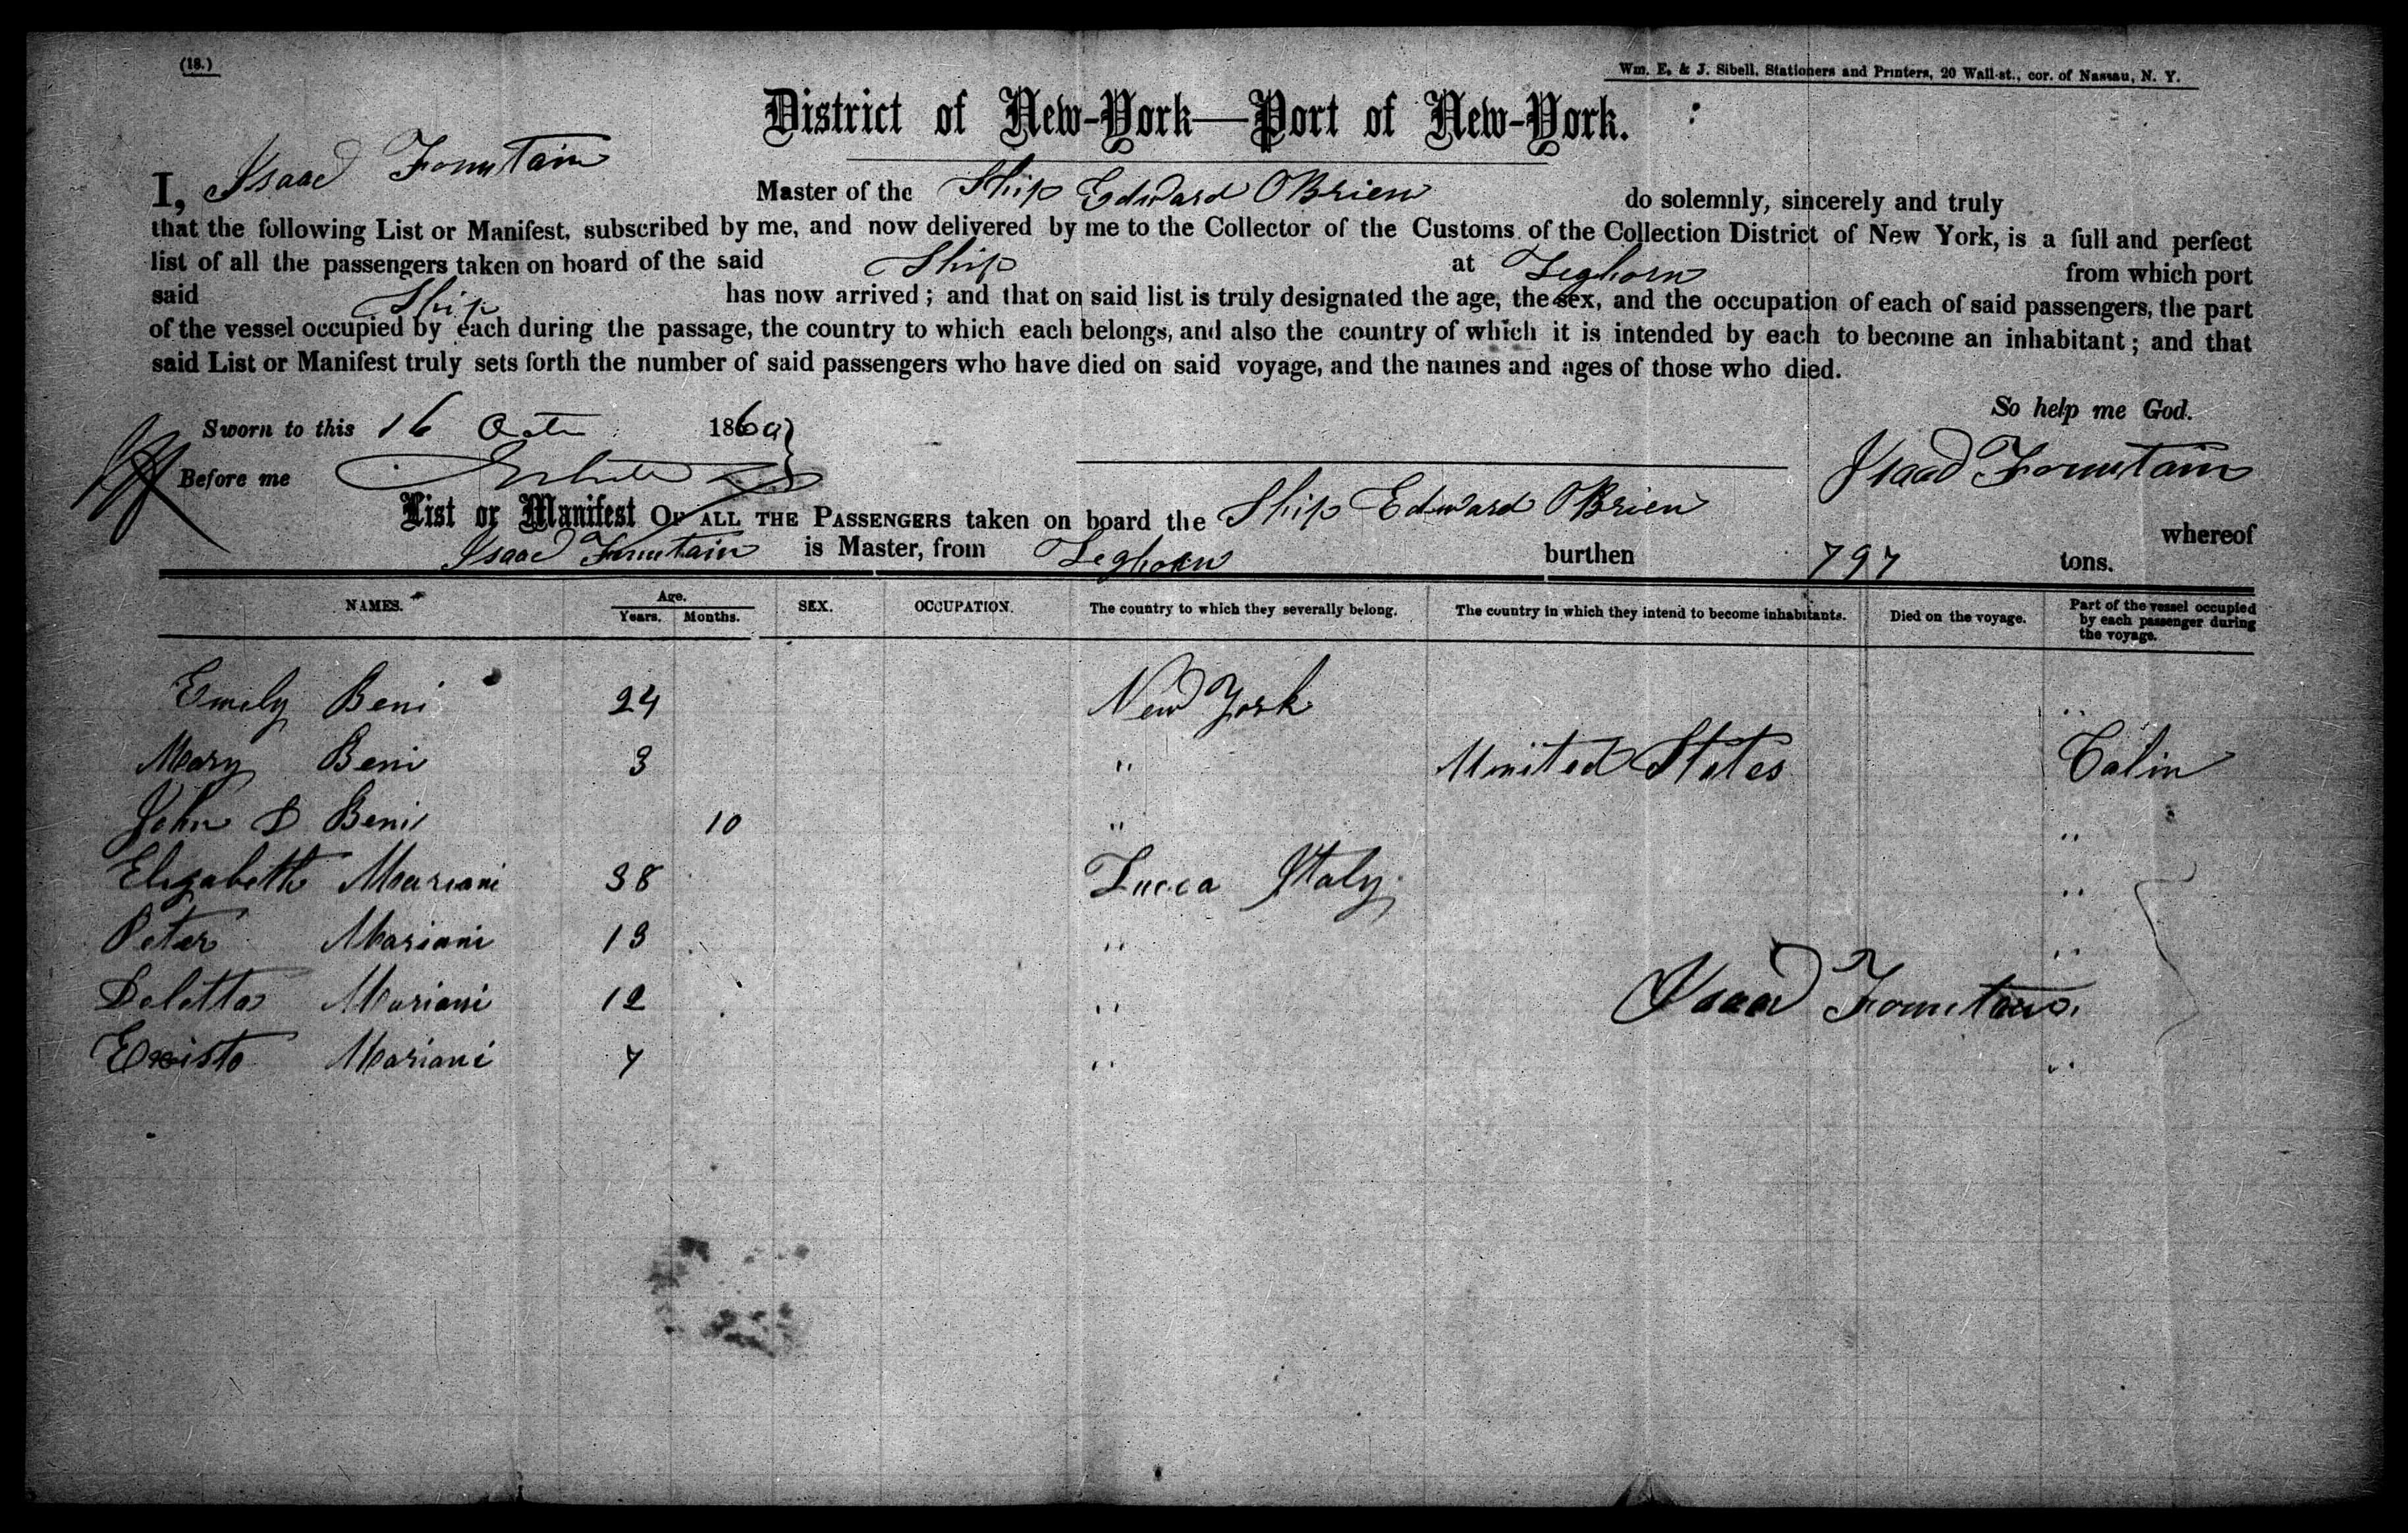 (18.)
Wm. E. & J. Sibell, Stationers and Printers, 20 Wall-st., cor. of Nassau, N. Y.
District of New-York—Port of New-York.
I, Isaac Fountain Master of the Ship Edward OBrien do solemnly, sincerely and truly
that the following List or Manifest, subscribed by me, and now delivered by me to the Collector of the Customs of the Collection District of New York, is a full and perfect
list of all the passengers taken on board of the said Ship at Leghorn from which port
said Ship has now arrived; and that on said list is truly designated the age, the sex, and the occupation of each of said passengers, the part
of the vessel occupied by each during the passage, the country to which each belongs, and also the country of which it is intended by each to become an inhabitant; and that
said List or Manifest truly sets forth the number of said passengers who have died on said voyage, and the names and ages of those who died.
So help me God.
Sworn to this 16 Oct 1860
Isaac Fountain
Before me
List or Manifest OF ALL THE PASSENGERS taken on board the Ship Edward OBrien whereof
Isaac Fountain is Master, from Leghorn burthen 797 tons.
NAMES. Age. Years. Months. SEX. OCCUPATION. The country to which they severally belong. The country in which they intend to become inhabitants. Died on the voyage. Part of the vessel occupied by each passenger during the voyage.
Emily Beni 24 New York
Mary Beni 3 " United States Cabin
John D Beni 10 " "
Elizabeth Mariani 38 Lucca Italy "
Peter Mariani 13 " "
Deletta Mariani 12 "
Isaac Fountain
Mariani 7 " "